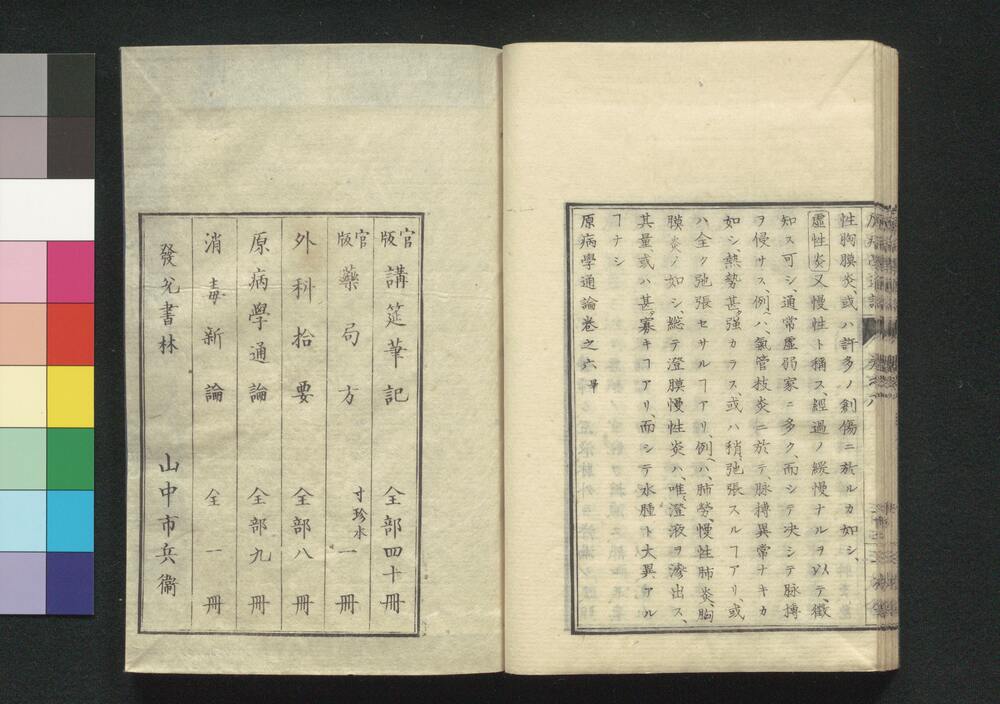 性胸膜炎、或ハ許多ノ創傷ニ於ルカ如シ、
虚性炎又慢性ト稱ス、經過ノ緩慢ナルヲ以テ、徴
知ス可シ、通常虚弱家ニ多ク、而シテ决シテ脉搏
ヲ侵サス、例ヘハ、氣管枝炎ニ於テ脉搏異常ナキカ
如シ、熱勢甚強カラス、或ハ稍弛張スルヿアリ、或
ハ全ク弛張セサルヿアリ、例ヘハ、肺勞、慢性肺炎、胸
膜炎ノ如シ、総テ澄膜慢性炎ハ、唯澄液ヲ滲出ス、
其量或ハ甚寡キヿアリ、而シテ水腫ト大異アル
ヿナシ
原病學通論卷之六畢
官版 講筵筆記 全部四十冊
官版 藥局方 寸珍本 一冊
外科拾要 全部八冊
原病學通論 全部九冊
消毒新論 全一冊
發兌書林 山中市兵衞